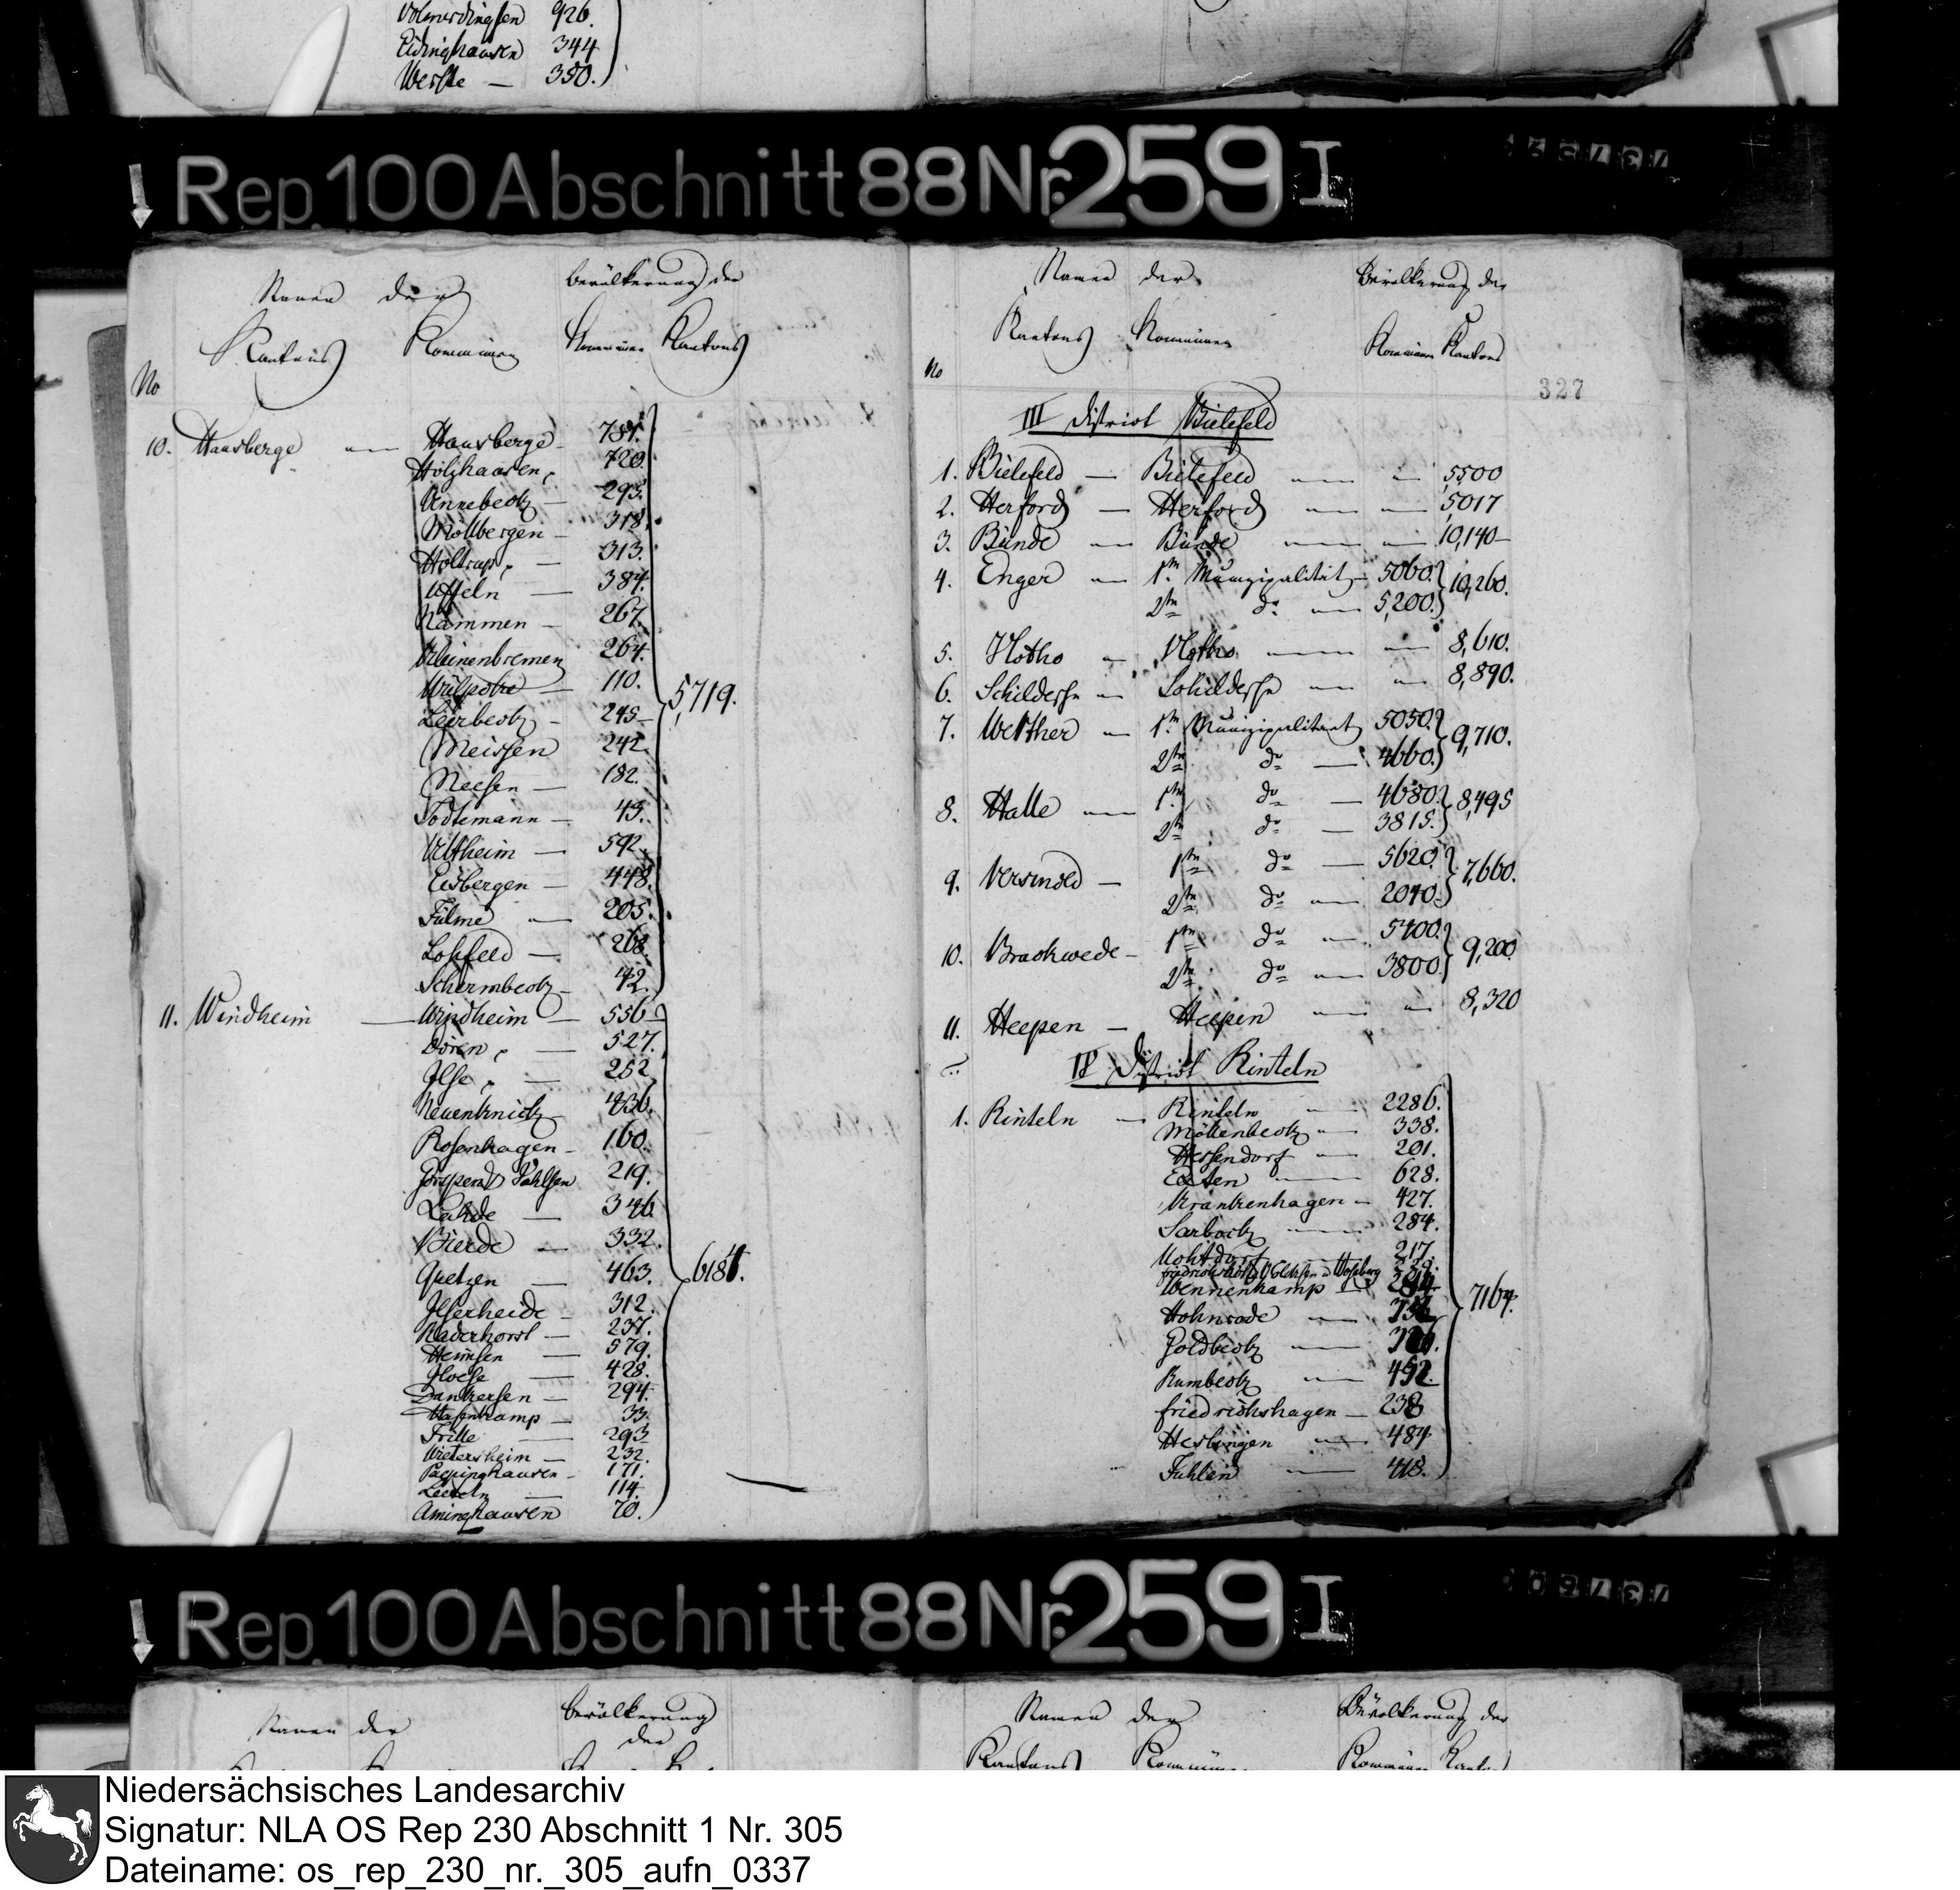 Volmerdingsen 926.
Eidinghausen 344
Werste — 350.
Rep. 100 Abschnitt 88 Nr. 259 I
Namen der Bevölkerung der
Kantons Kommunen Kommunen Kantons
No
10. Hausberge — Hausberge — 781.
Holzhausen, 720.
Vennebeck — 295.
Möllbergen — 318.
Holtrup, — 313.
Uffeln — 384.
Nammen — 267.
Kleinenbremen 264.
Wülpcke — 110.
Leerbeck — 245 —
5,719.
Meissen 242.
Neesen — 182.
Todtemann — 43.
Veltheim — 592.
Eisbergen — 448.
Fülme — 205.
Lohfeld — 268.
Schermbeck — 42.
11. Windheim — Windheim — 556
Dören, — 527.
Ilse, — 252
Neuenknick 436.
Rosenhagen — 160.
Gorspen & Vahlsen 219.
Lahde — 346.
Bierde — 332.
Quetzen — 463.
6184.
Ilserheide — 312.
Raderhorst — 237.
Heimsen — 579.
Iloese — 428.
Dankersen — 294.
Hasenkamp — 33.
Frille — 293
Wietersheim — 232.
Paepinghausen — 171.
Leeteln — 114.
Aminghausen 70.
Namen der Bevölkerung der
Kantons Kommunen Kommunen Kantons
No
327
III District Bielefeld
1. Bielefeld — Bielefeld — — 5500
2. Herford — Herford — — 5017
3. Bünde — Bünde — — 10,140 —
4. Enger — 1te Munizipalität — 5060. 10,260.
2te do — 5,200.
5. Vlotho — Vlotho — — 8,610.
6. Schildesche — Schildesche — — 8,890.
7. Werther — 1te Munizipalitaet 5050. 9,710.
2te do — 4660.
8. Halle — 1te do — 4680. 8,495
2te do — 3815.
9. Versmold — 1te do — 5620. 7,660.
2te do — 2040.
10. Brackwede — 1te do — 5400. 9,200
2te do — 3800.
11. Heepen — Heepen — — 8,320
IV District Rinteln
1. Rinteln — Rinteln — 2286.
Möllenbeck — 338.
Hessendorf — 201.
Exten — 628.
Krankenhagen — 427.
Sarbeck — 284.
Uchtdorf — 217.
Wennenkamp
7164.
Hohnrode —
Goldbeck —
Rumbeck — 452.
Friedrichshagen — 238
Heslingen — 484
Fuhlen — 418.
Rep. 100 Abschnitt 88 Nr. 259 I
Namen der Bevölkerung der
Namen der Bevölkerung der
Kantons Kommunen Kommunen Kantons
Niedersächsisches Landesarchiv
Signatur: NLA OS Rep 230 Abschnitt 1 Nr. 305
Dateiname: os_rep_230_nr._305_aufn_0337